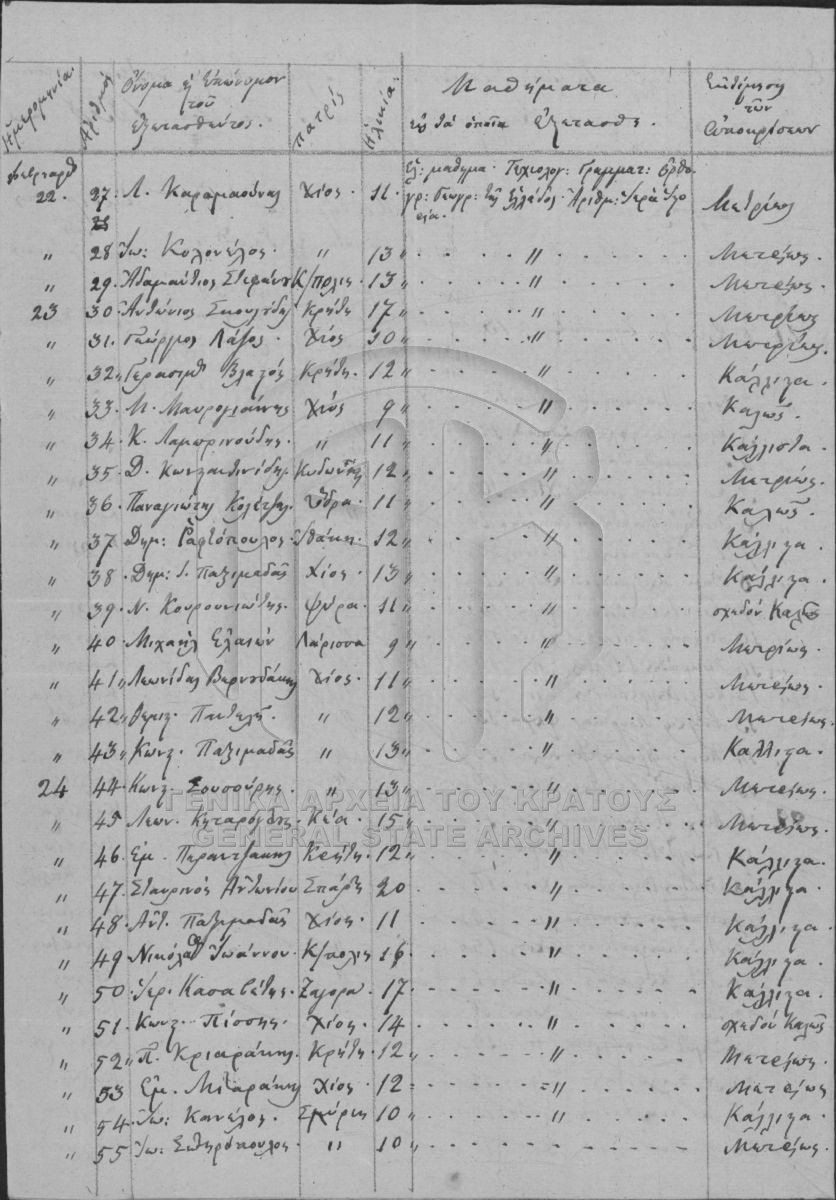 Ἡμερομηνία. Ἀριθμός Ὄνομα ἢ Ἐπώνυμον τοῦ ἐξετασθέντος. πατρίς Ἡλικία. Μαθήματα εἰς τὰ ὁποῖα ἐξετάσθη. Ἐκτίμησις τῶν ἀποκρίσεων
22. 27. Λ. Καραμαούνας Χίος. 11. Ἑλ: μάθημα. Τεχνολογ: Γραμματ: Ὀρθο
γρ: Γεωγρ: τῆς Ἑλλάδος. Ἀριθμ: Ἱερὰ Ἱςο
ρία. Μετρίως
〃 28 Ἰω: Κολονέλος. 〃 13 〃 〃 Μετρίως.
〃 29. Ἀδαμάντιος Στεφάνου Κ/πολις 13 〃 〃 Μετρίως.
23 30. Ἀντώνιος Κρήτη 17 〃 〃 Μετρίως
〃 31. Γεώργιος Λάζος. Χίος 10 〃 〃 Μετρίως.
〃 32 Γεράσιμος Βλαχός Κρήτη. 12 〃 〃 Κάλλιςα.
〃 33. Μ. Μαυρογιάννης Χίος 9 〃 〃 Καλῶς.
〃 34. Κ. Λαμπρινούδης. 〃 11 〃 〃 Κάλλιστα.
〃 35. Δ. Κωνςαντινίδης. 12 〃 〃 Μετρίως.
〃 36. Παναγιώτης Ὕδρα. 11 〃 〃 Καλῶς.
〃 37. Δημ: Ῥαφτόπουλος. Ἰθάκη. 12 〃 〃 Κάλλιςα.
〃 38. Δημ: Ι. Παξιμαδᾶς Χίος. 13 〃 〃 Κάλλιςα.
〃 39. Ν. Κουρουνιώτης. Ψύρα. 11 〃 〃 σχεδόν Καλῶς
〃 40. Μιχαήλ Ἐλαιών Λάρισσα 9 〃 〃 Μετρίως.
〃 41 Λεωνίδας Βερνυδάκης Χίος. 11 〃 〃 Μετρίως.
〃 42 Θεμιςς. Παντελῆς. 〃 12 〃 〃 Μετρίως.
〃 43 Κωνς. Παξιμαδᾶς 〃 13 〃 〃 Κάλλιςα.
24 44. Κωνς. Σουσούρης. 〃 13 〃 〃 Μετρίως.
〃 45 Λεων. Κέα. 15 〃 〃 Μετρίως.
〃 46. Ἐμ. Περαντζάκης Κρήτη. 12 〃 〃 Κάλλιςα.
〃 47. Σταυρινός Ἀντωνίου Σπάρτη 20 〃 Κάλλιςα.
〃 48. Ἀντ. Παξιμαδᾶς Χίος. 11 〃 Κάλλιςα.
〃 49 Νικόλαος Ἰωάννου. Κ/πολις 16 〃 Κάλλιςα.
〃 50. Ἱερ. Κασαβέτης. Ζαγορα. 17. 〃 Κάλλιςα.
〃 51. Κωνς. Πίσσης. Χίος. 14 〃 σχεδόν Καλῶς
〃 52 Π. Κριαράκης. Κρήτη. 12 〃 〃 Μετρίως.
〃 53 Ἐμ. Μιταράκης Χίος. 12 〃 Μετρίως
〃 54. Ἰω: Κανέλος. Σμύρνη 10 〃 〃 Κάλλιςα.
〃 55 Ἰω: Σωτηρόπουλος. 〃 10 〃 Μετρίως.
ΓΕΝΙΚΑ ΑΡΧΕΙΑ ΤΟΥ ΚΡΑΤΟΥΣ
GENERAL STATE ARCHIVES